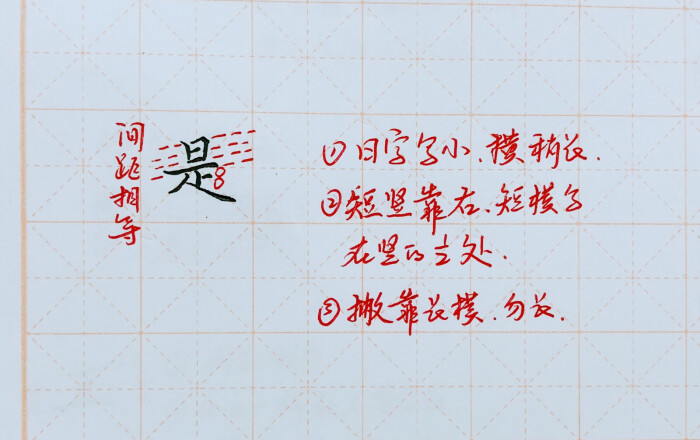 间距相等
是
①日字写小、横稍长.
②短竖靠右、短横写
在竖的½处.
③撇靠长横、勿长.